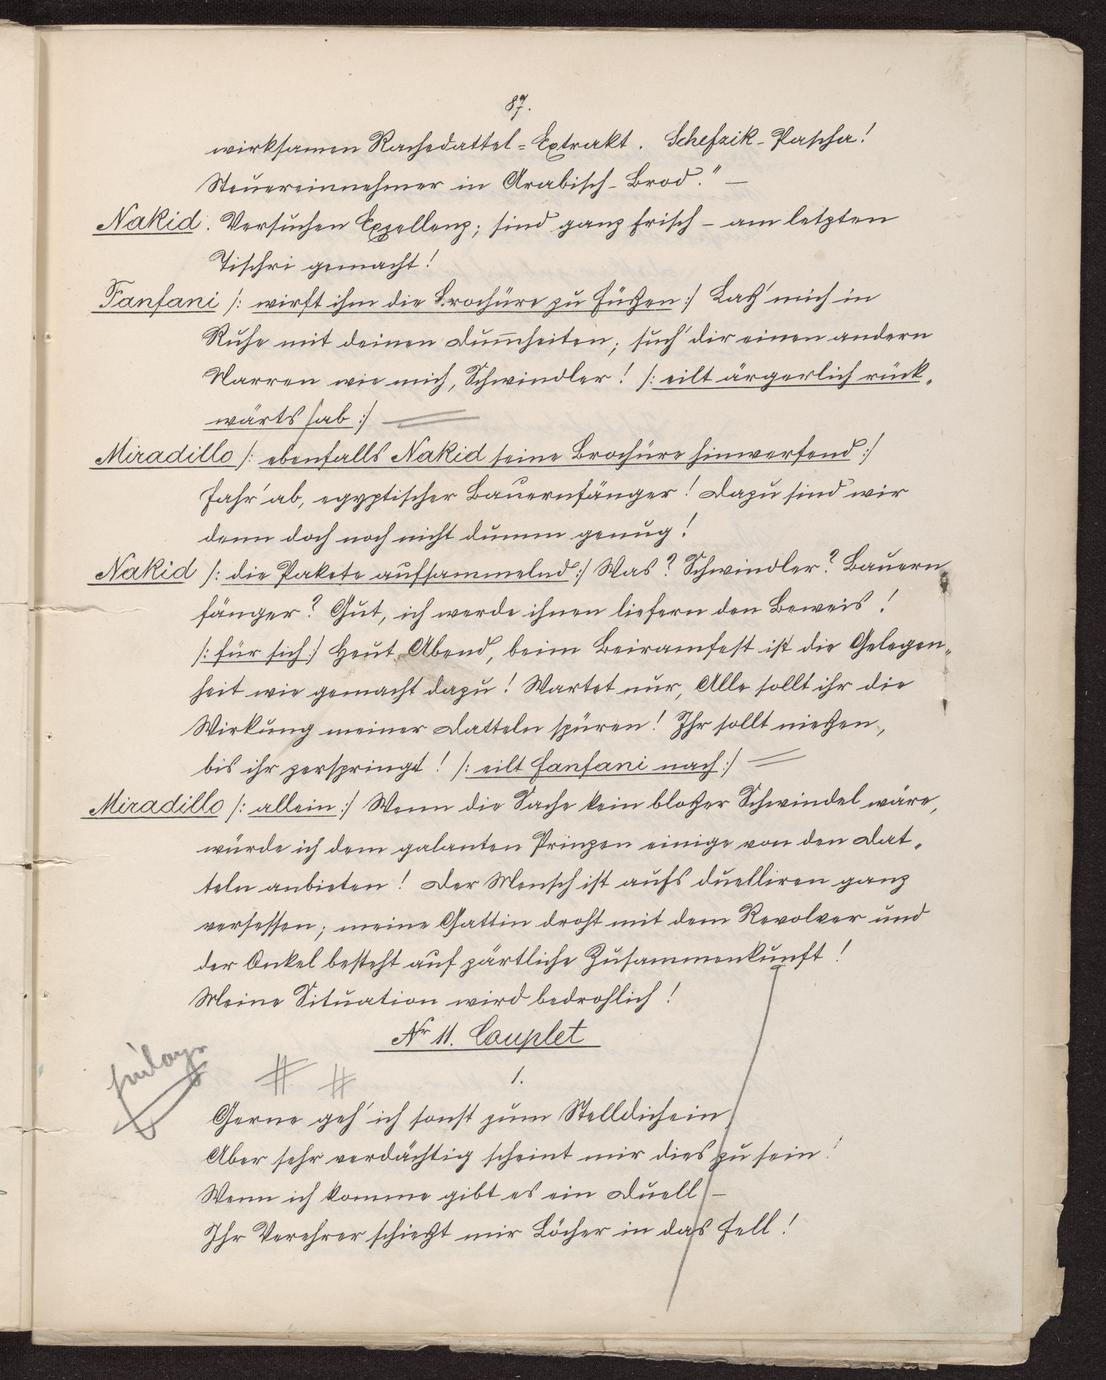 87.
wirksamen Rachedattel=Extrakt. Schefzik-Pascha!
Steuereinnehmer in Arabisch-Brod." —
Nakid: Versuchen Exzellenz; sind ganz frisch – am letzten
Tischri gemacht!
Fanfani /: wirft ihm die Brochüre zu Füßen :/ Laß' mich in
Ruhe mit deinen Dum̄heiten; such' dir einen andern
Narren wie mich, Schwindler! /: eilt ärgerlich rück=
wärts ab :/
Miradillo /: ebenfalls Nakid seine Brochüre hinwerfend :/
Fahr' ab, egyptischer Bauernfänger! Dazu sind wir
denn doch noch nicht dumm genug!
Nakid /: die Pakete aufsammelnd :/ Was? Schwindler? Bauern=
fänger? Gut, ich werde ihnen liefern den Beweis!
/: für sich :/ Heut Abend, beim Beiramfest ist die Gelegen=
heit wie gemacht dazu! Wartet nur, Alle sollt ihr die
Wirkung meiner Datteln spüren! Ihr sollt nießen,
bis ihr zerspringt! /: eilt Fanfani nach :/
Miradillo /: allein :/ Wenn die Sache kein bloßer Schwindel wäre,
würde ich dem galanten Prinzen einige von den Dat=
teln anbieten! Der Mensch ist aufs duelliren ganz
versessen; meine Gattin droht mit dem Revolver und
der Onkel besteht auf zärtliche Zusammenkunft!
Meine Situation wird bedrohlich!
Nr 11. Couplet
1.
Gerne geh' ich sonst zum Stelldichein
Aber sehr verdächtig scheint mir dies zu sein!
Wenn ich komme gibt es ein Duell –
Ihr Verehrer schießt mir Löcher in das Fell!